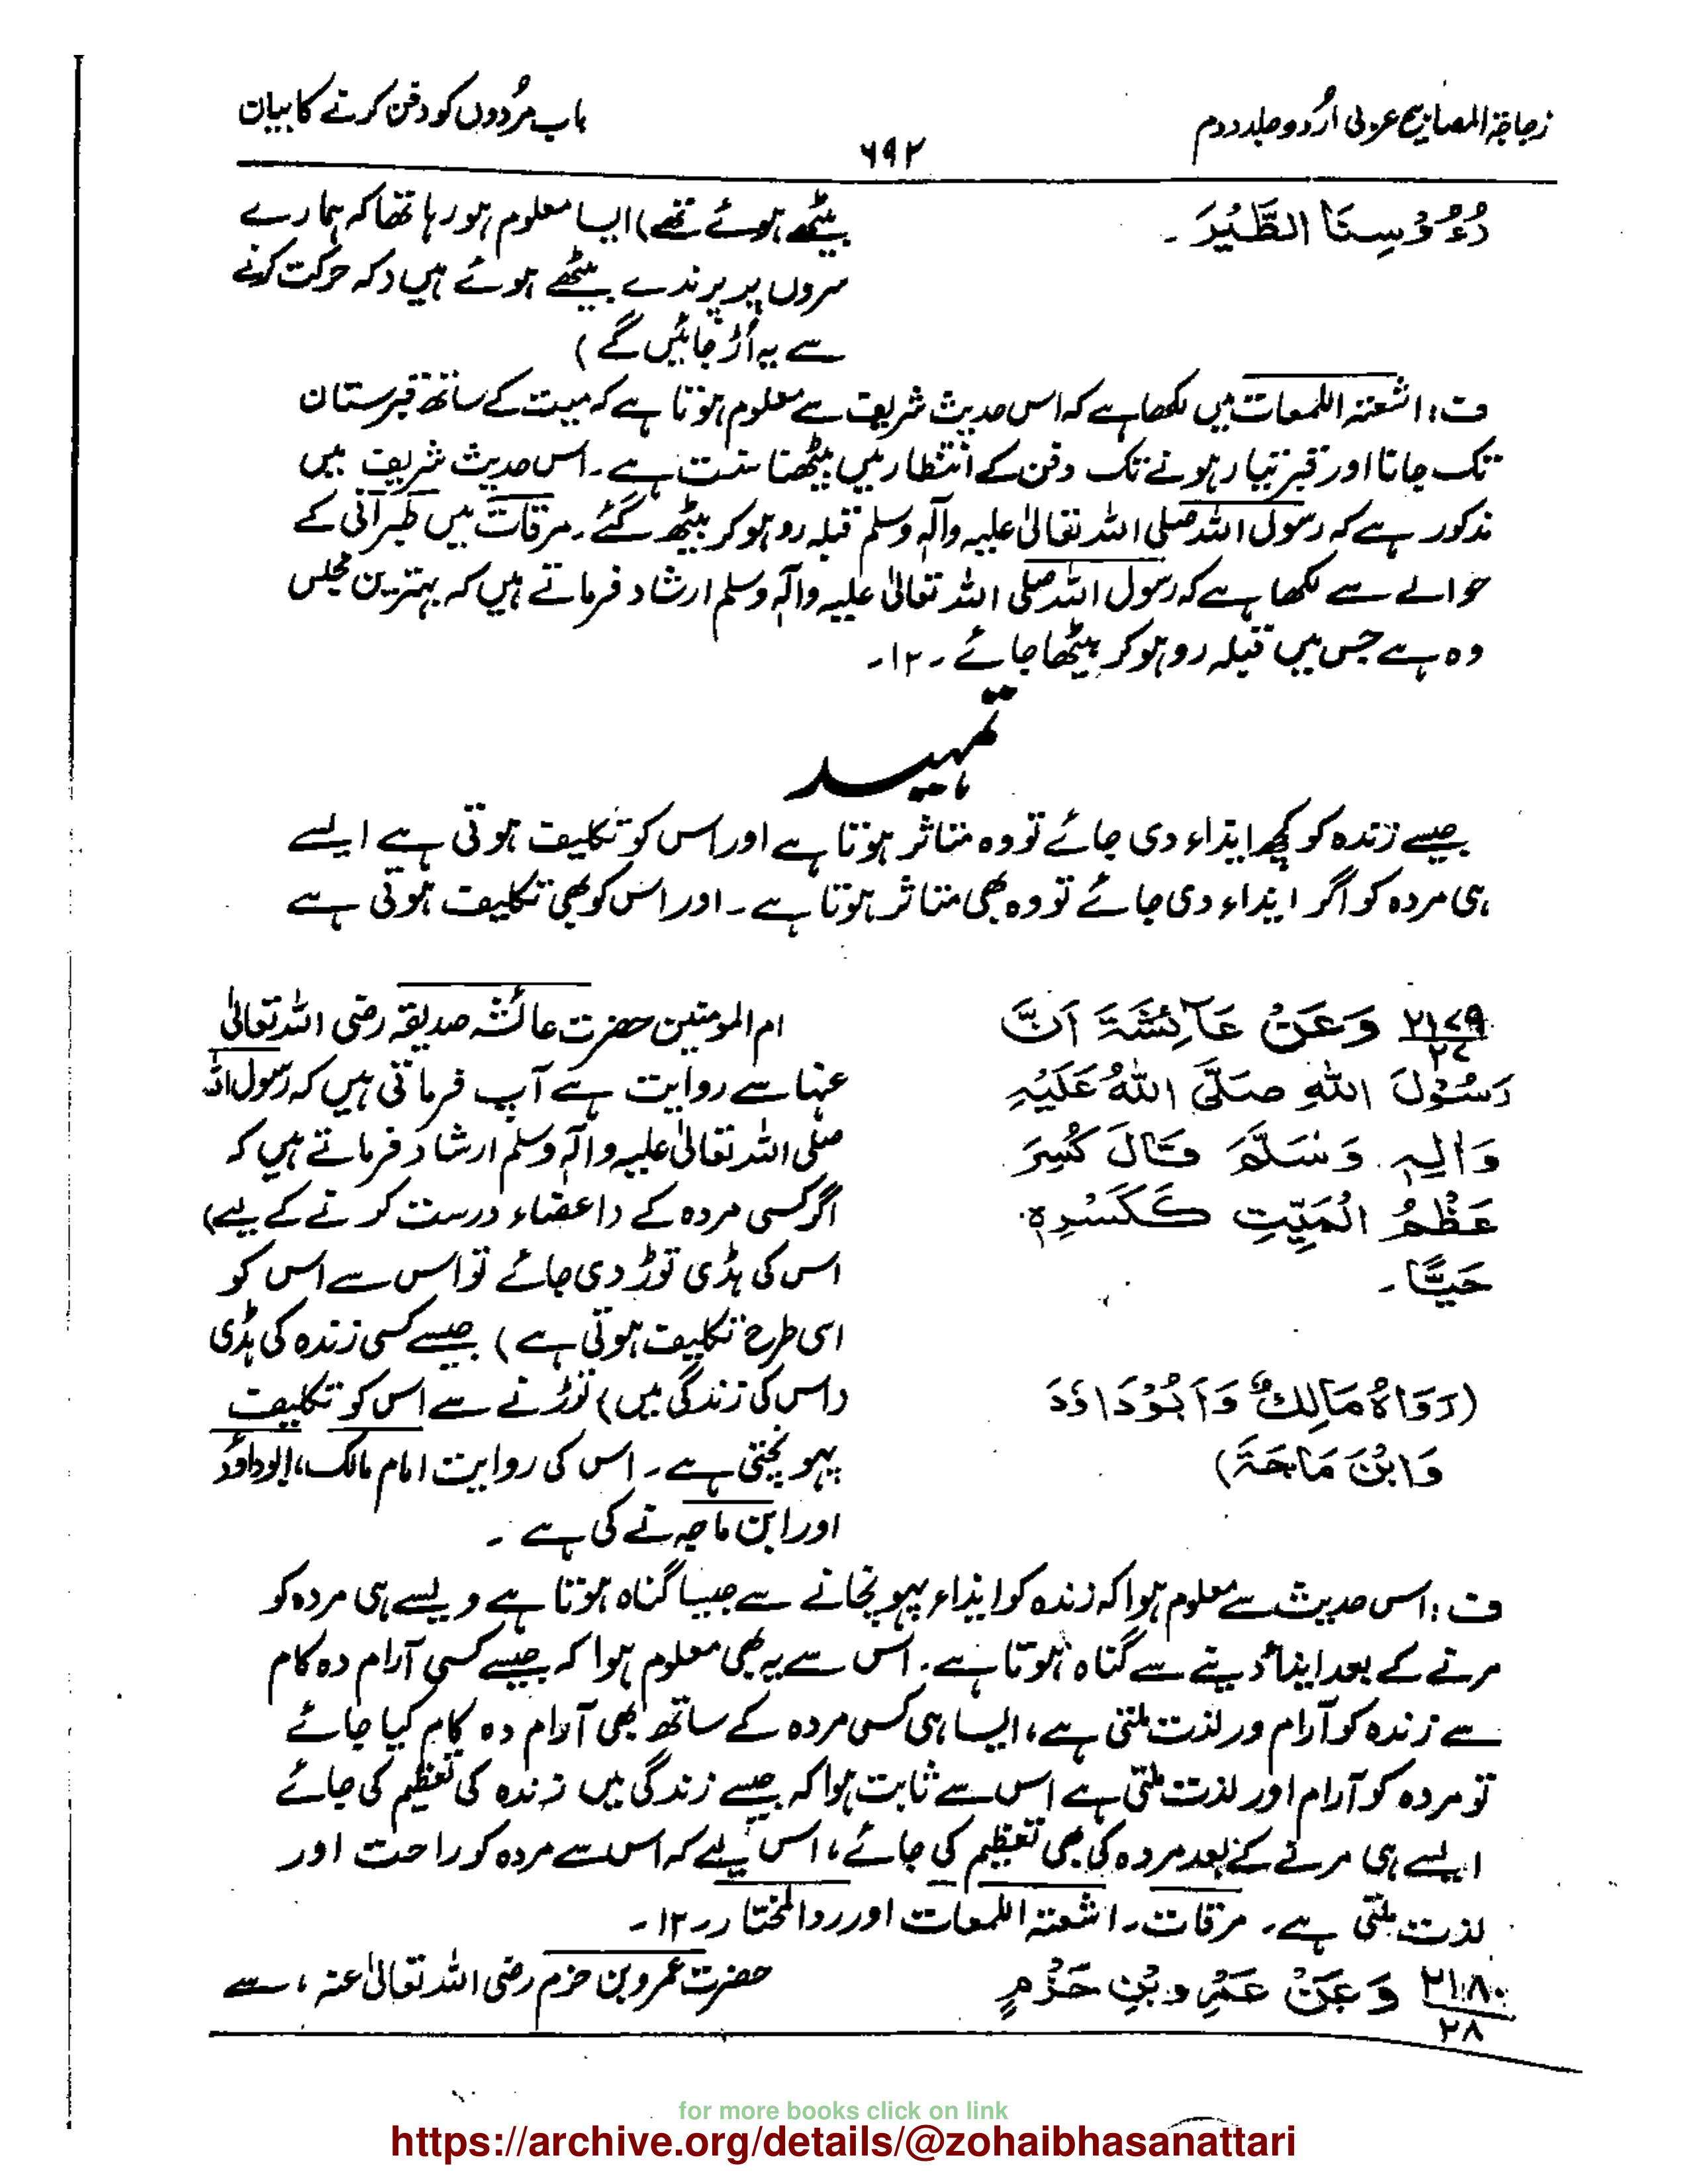 زجاجۃ المصابیح عربی اُردو جلد دوم
۶۹۲
باب مُردوں کو دفن کرنے کا بیان
رُءُوْسِنَا الطَّيْرَ۔
بیٹھے ہوئے تھے) ایسا معلوم ہو رہا تھا کہ ہمارے
سروں پر پرندے بیٹھے ہوئے ہیں (کہ حرکت کرنے
سے یہ اُڑ جائیں گے)
ف: اشعتہ اللمعات میں لکھا ہے کہ اس حدیث شریف سے معلوم ہوتا ہے کہ میت کے ساتھ قبرستان
تک جانا اور قبر تیار ہونے تک دفن کے انتظار میں بیٹھنا سنت ہے۔ اس حدیث شریف میں
مذکور ہے کہ رسول اللہ صلی اللہ تعالیٰ علیہ والٰہ وسلم قبلہ رو ہو کر بیٹھ گئے۔ مرقات میں طبرانی کے
حوالے سے لکھا ہے کہ رسول اللہ صلی اللہ تعالیٰ علیہ والٰہ وسلم ارشاد فرماتے ہیں کہ بہترین مجلس
وہ ہے جس میں قبلہ رو ہو کر بیٹھا جائے۔ ۱۲۔
تمہید
جیسے زندہ کو کچھ ایذاء دی جائے تو وہ متاثر ہوتا ہے اور اس کو تکلیف ہوتی ہے ایسے
ہی مردہ کو اگر ایذاء دی جائے تو وہ بھی متاثر ہوتا ہے۔ اور اس کو بھی تکلیف ہوتی ہے
۲۱۷۹
۲۷
وَعَنْ عَآئِشَةَ اَنَّ
رَسُوْلَ اللّٰهِ صَلَّى اللّٰهُ عَلَيْهِ
وَاٰلِهٖ وَسَلَّمَ قَالَ كَسْرُ
عَظْمِ الْمَيِّتِ كَكَسْرِهٖ
حَيًّا۔
(رَوَاهُ مَالِكٌ وَاَبُوْدَاوٗدَ
وَابْنُ مَاجَةَ)
ام المومنین حضرت عائشہ صدیقہ رضی اللہ تعالیٰ
عنہا سے روایت ہے آپ فرماتی ہیں کہ رسول اللہ
صلی اللہ تعالیٰ علیہ والٰہ وسلم ارشاد فرماتے ہیں کہ
اگر کسی مردہ کے (اعضاء درست کرنے کے لیے)
اس کی ہڈی توڑ دی جائے تو اس سے اس کو
اسی طرح تکلیف ہوتی ہے) جیسے کسی زندہ کی ہڈی
(اس کی زندگی میں) توڑنے سے اس کو تکلیف
پہونچتی ہے۔ اس کی روایت امام مالک، ابو داؤد
اور ابن ماجہ نے کی ہے۔
ف: اس حدیث سے معلوم ہوا کہ زندہ کو ایذاء پہونچانے سے جیسا گناہ ہوتا ہے ویسے ہی مردہ کو
مرنے کے بعد ایذاء دینے سے گناہ ہوتا ہے۔ اس سے یہ بھی معلوم ہوا کہ جیسے کسی آرام دہ کام
سے زندہ کو آرام ور لذت ملتی ہے، ایسا ہی کسی مردہ کے ساتھ بھی آرام دہ کام کیا جائے
تو مردہ کو آرام اور لذت ملتی ہے اس سے ثابت ہوا کہ جیسے زندگی میں زندہ کی تعظیم کی جائے
ایسے ہی مرنے کے بعد مردہ کی بھی تعظیم کی جائے، اس لیے کہ اس سے مردہ کو راحت اور
لذت ملتی ہے۔ مرقات۔ اشعتہ اللمعات اور ردالمختار۔ ۱۲۔
۲۱۸۰
۲۸
وَعَنْ عَمْرِو بْنِ حَزْمٍ
حضرت عمرو بن حزم رضی اللہ تعالیٰ عنہ، سے
for more books click on link
https://archive.org/details/@zohaibhasanattari